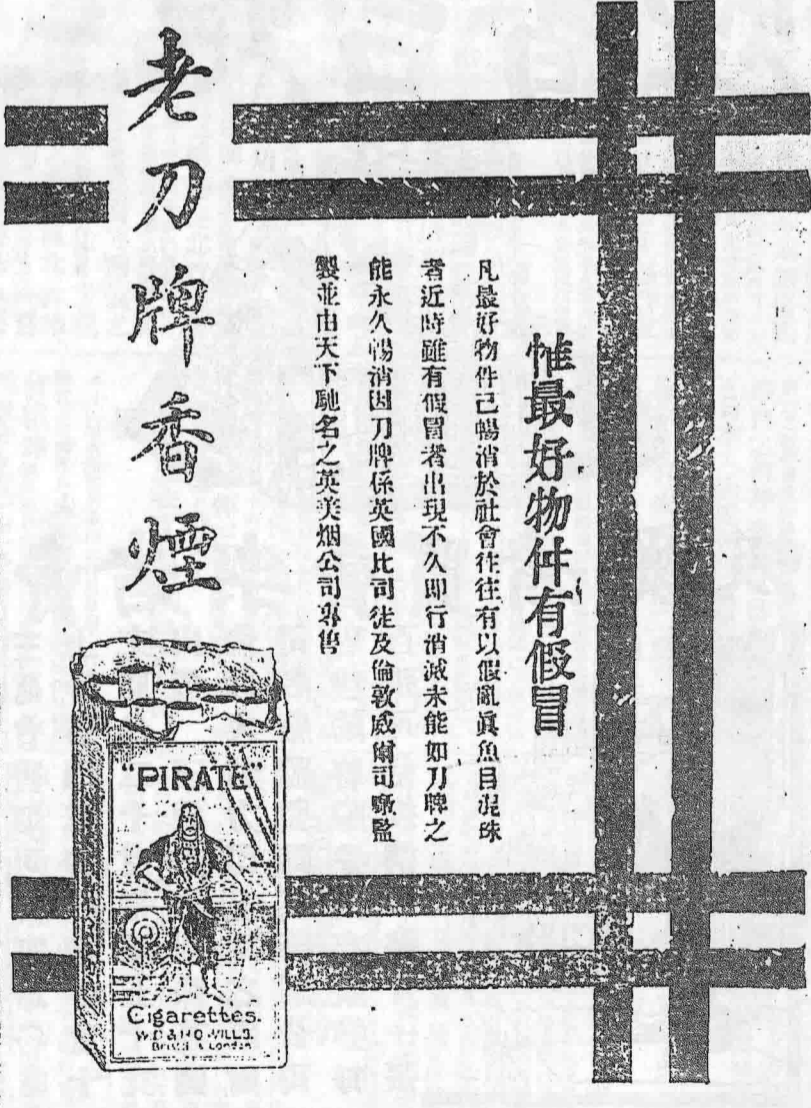 惟最好物件有假冒
凡最好物件已暢消於社會往往有以假亂眞魚目混珠
者近時雖有假冒者出現不久即行消滅未能如刀牌之
能永久暢消因刀牌係英國比司徒及倫敦威爾司廠監
製並由天下馳名之英美烟公司專售
老刀牌香煙
"PIRATE"
Cigarettes.
W.D & H O WILLS.
Bristol & London